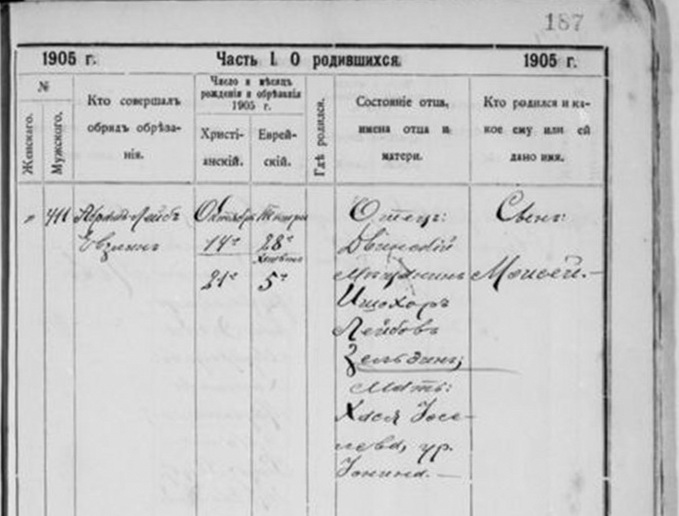 187
1905 г. Часть I. О родившихся. 1905 г.
№
Женскаго.
Мужского.
Кто совершалъ
обрядъ обрѣза-
нія.
Число и мѣсяцъ
рожденія и обрѣзанія
1905 г.
Христі-
анскій.
Еврей-
скій.
Гдѣ родился.
Состояніе отца,
имена отца и
матери.
Кто родился и ка-
кое ему или ей
дано имя.
" 411
Абрамъ-Лейбъ
Евзлинъ
Октября
14г
21г
Тишри
28г
Хешвонъ
5г
Отецъ:
Двинскій
мѣщанинъ
Ишохоръ
Лейбовъ
Зельдинъ;
Мать:
Хася Іосе-
лева, ур.
Іонина.—
Сынъ:
Моисей.—